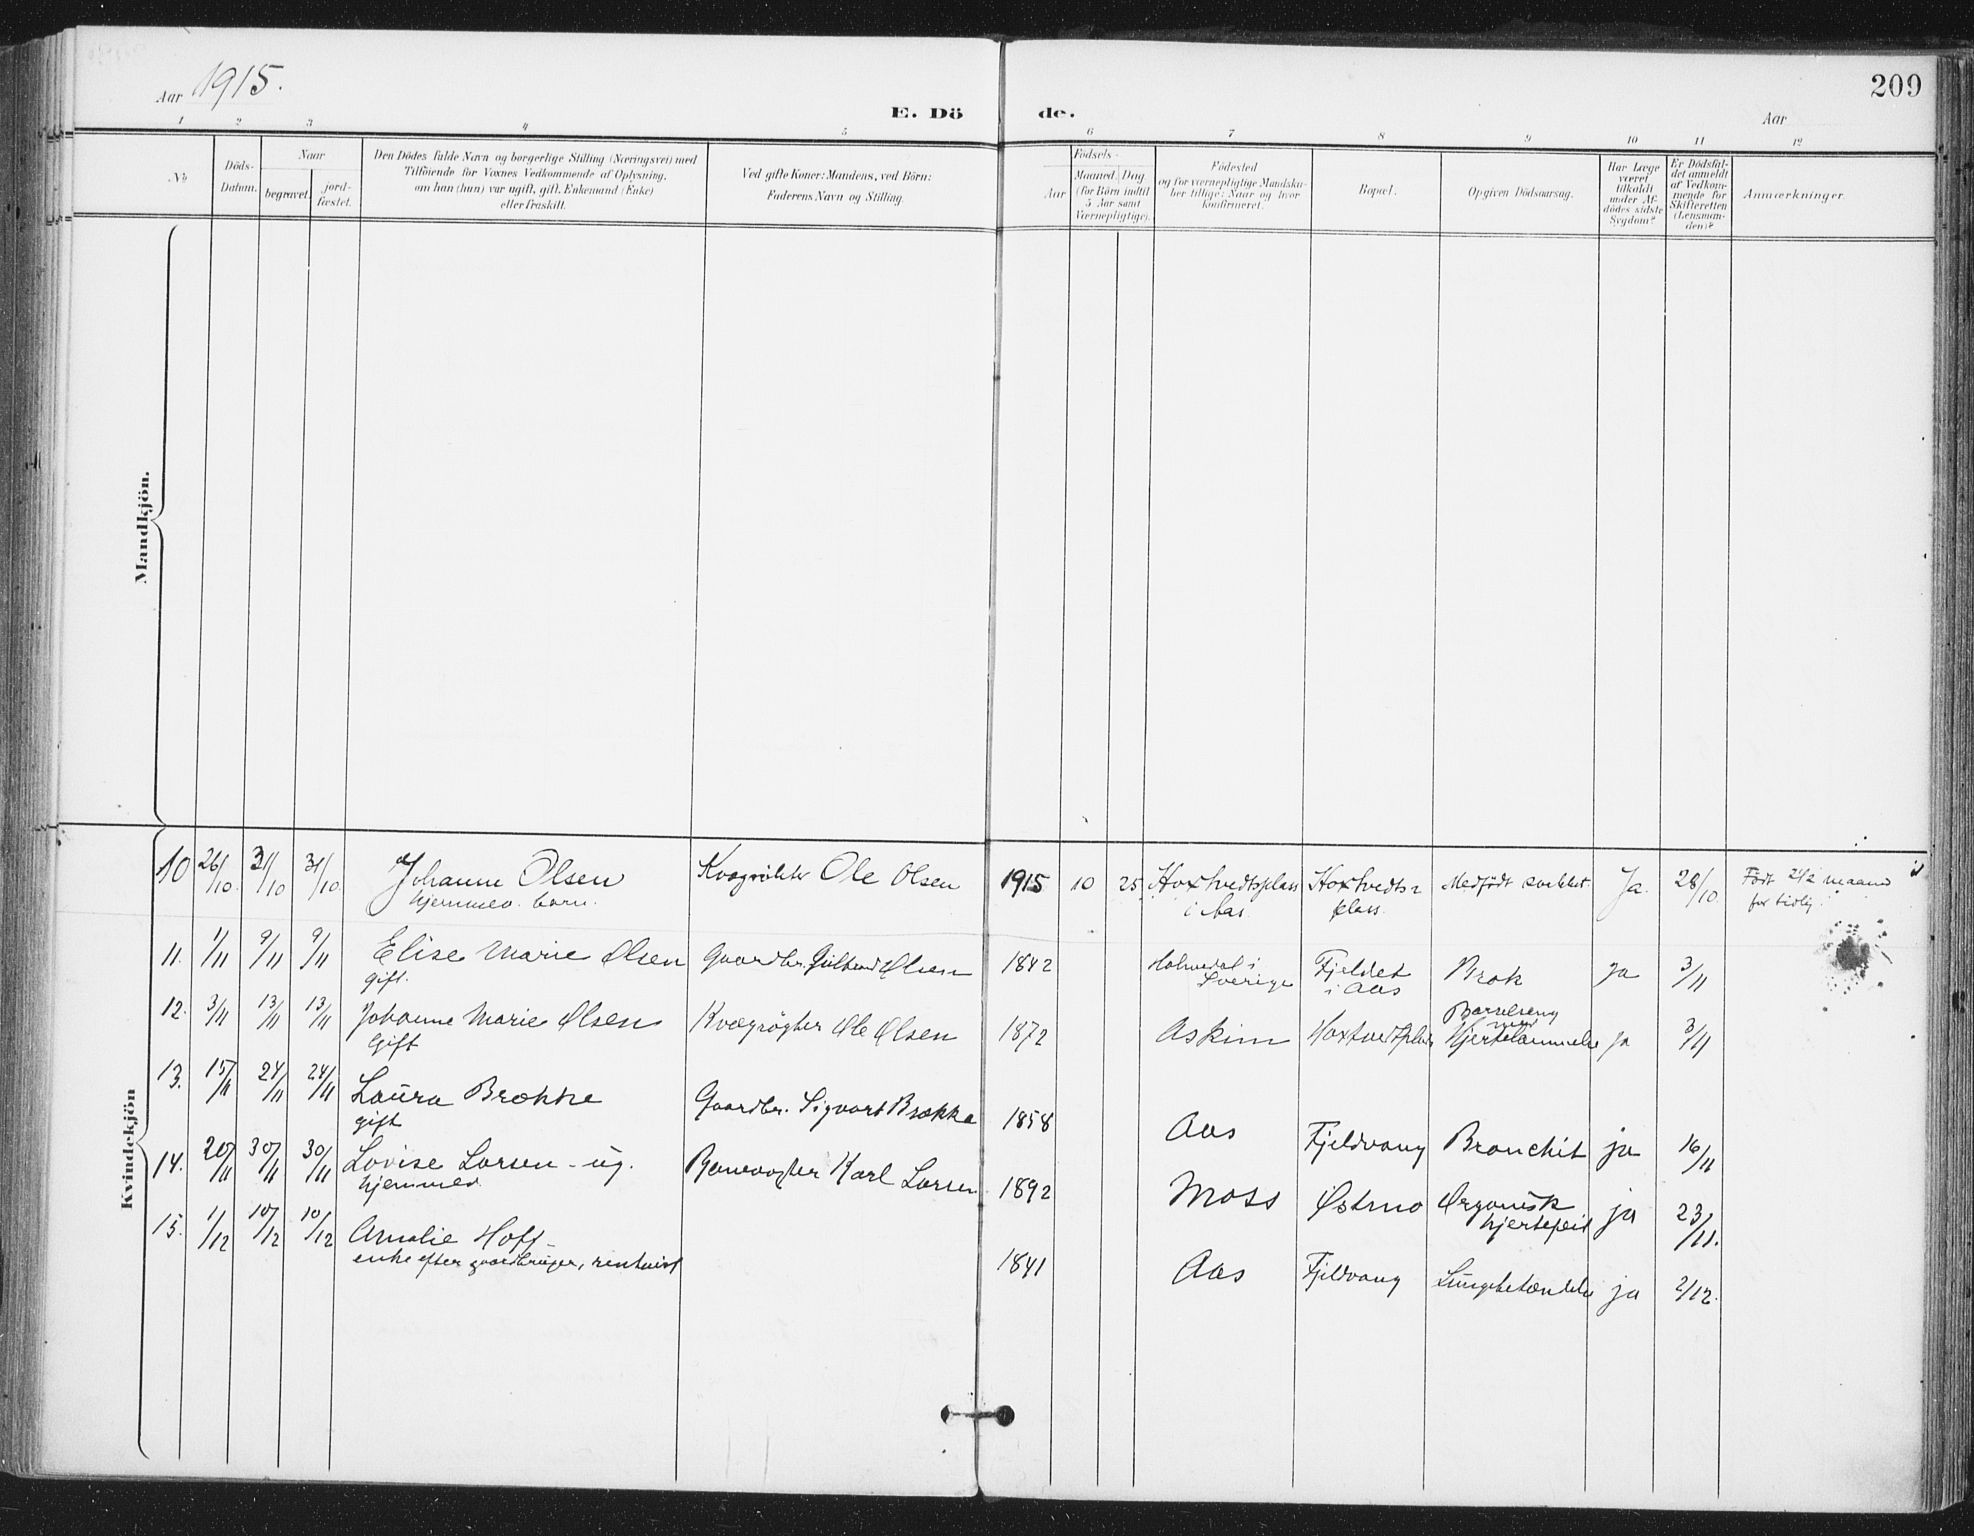 209
Aar 1915.
E. Dö de.
Aar
1 2 3 4 5 6 7 8 9 10 11 12
No
Döds-Datum.
Naar
begravet.
jord-fæstet.
Den Dödes fulde Navn og borgerlige Stilling (Næringsvei) med
Tilföiende for Voxnes Vedkommende af Oplysning,
om han (hun) var ugift, gift, Enkemand (Enke)
eller fraskilt.
Ved gifte Koner: Mandens, ved Börn:
Faderens Navn og Stilling.
Fødsels-
Aar
Maaned. Dag.
(for Börn indtil
5 Aar samt
Værnepligtige).
Födested
og for værnepligtige Mandska-
ber tillige: Naar og hvor
konfirmeret.
Bopæl.
Opgiven Dödsaarsag.
Har Læge
været
tilkaldt
under Af-
dödes sidste
Sygdom?
Er Dödsfal-
det anmeldt
af Vedkom-
mende for
Skifteretten
(Lensman-
den)?
Anmærkninger.
Mandkjön.
Kvindekjön
10 26/10 31/10 31/10 Johanne Olsen Ole Olsen 1915 10 25 Hoxtvedtsplass Hoxtvedts- Medfödt svekket Ja. 28/10 Födt 2 1/2 maaned
hjemmev. barn. i Aas plass. for tidlig.
11. 1/11 9/11 9/11 Elise Marie Olsen Gaardbr. Gulbrand Olsen 1842 Sverige Fjeldet Brok ja 3/11
gift. i Aas
12. 3/11 13/11 13/11 Johanne Marie Olsen Kvægrögter Ole Olsen 1872 Askim Hoxtvedtplads Barselseng Hjertelammelse ja 3/11
Gift
13. 15/11 24/11 24/11 Laura Brække Gaardbr. Sigvart Brække 1858 Aas Fjeldvang Bronchit ja 16/11
gift
14. 20/11 30/11 30/11 Lovise Larsen - ug. Banevogter Karl Larsen 1892 Moss Østmo Organisk ja 23/11.
hjemmev. hjertefeil
15. 1/12 10/12 10/12 Amalie Hoff - 1841 Aas Fjeldvang Lungebetændelse ja 2/12.
enke efter gaardbruger,